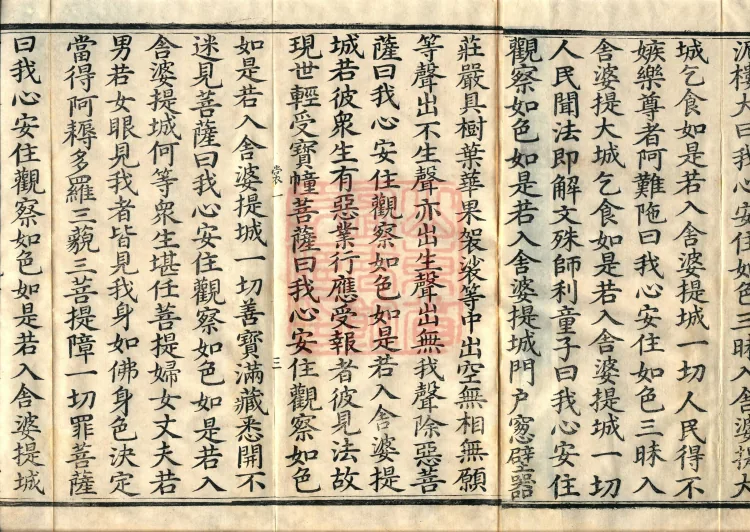 泥樓大曰我心安住如色三昧入舍婆提大
城乞食如是若入舍婆提城一切人民得不
嫉樂尊者阿難陁曰我心安住如色三昧入
舍婆提大城乞食如是若入舍婆提城一切
人民聞法即解文殊師利童子曰我心安住
觀察如色如是若入舍婆提城門户窓壁器
莊嚴具樹葉華果袈裟等中出空無相無願
等聲出不生聲亦出生聲出無我聲除惡菩
薩曰我心安住觀察如色如是若入舍婆提
城若彼衆生有惡業行應受報者彼見法故
現世輕受寶幢菩薩曰我心安住觀察如色
裳一 三
如是若入舍婆提城一切善寶滿藏悉開不
迷見菩薩曰我心安住觀察如色如是若入
舍婆提城何等衆生堪任菩提婦女丈夫若
男若女眼見我者皆見我身如佛身色決定
當得阿耨多羅三藐三菩提障一切罪菩薩
曰我心安住觀察如色如是若入舍婆提城